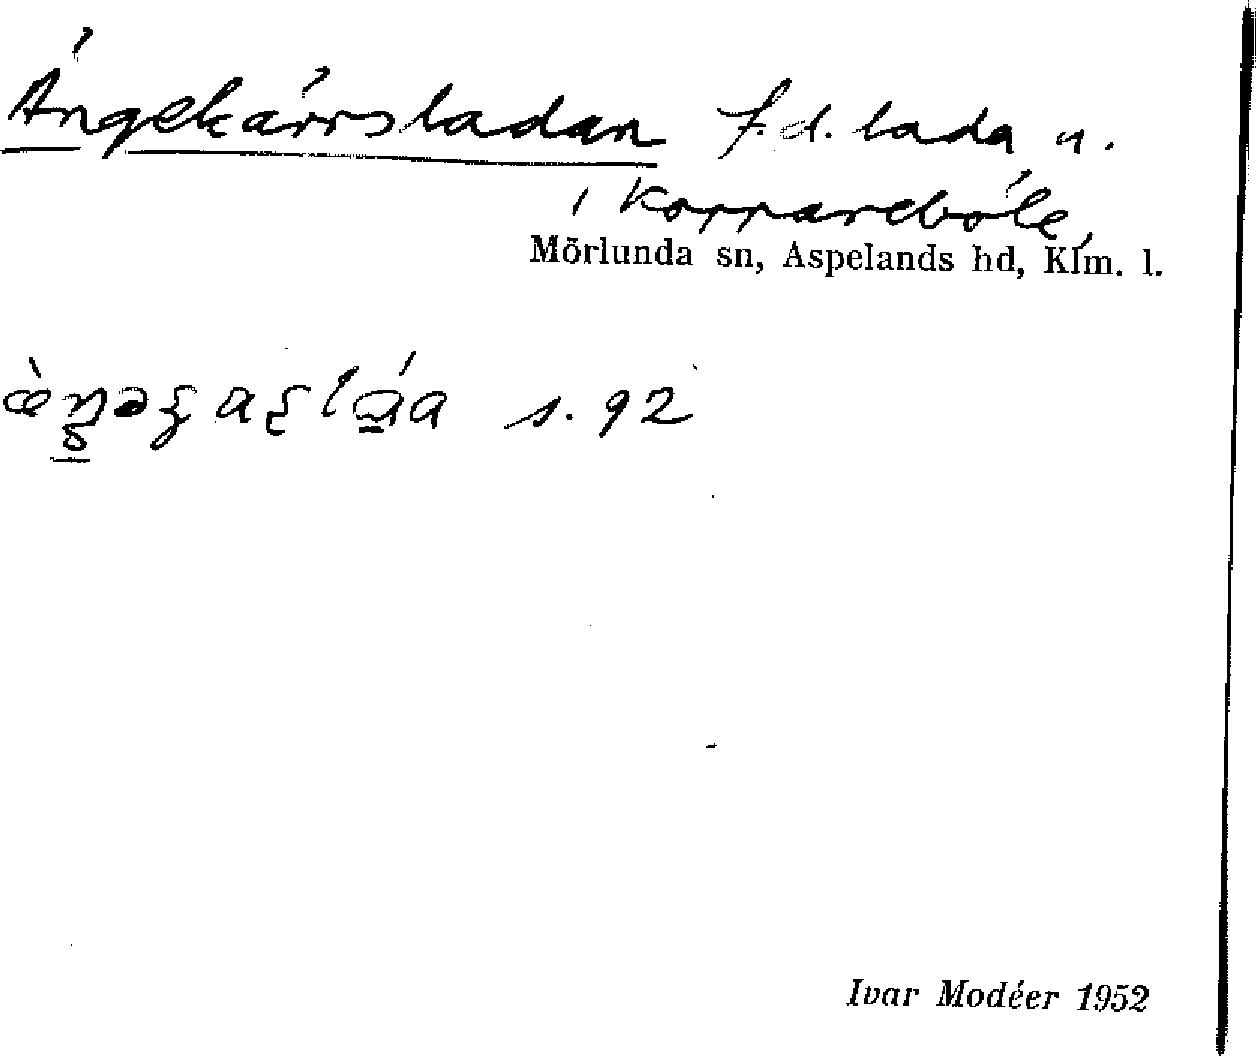 Ängekärrsladan f.d. lada n.
i Kopparebőle,
Mörlunda sn, Aspelands hd, Klm. l.
s. 92
Ivar Modéer 1952